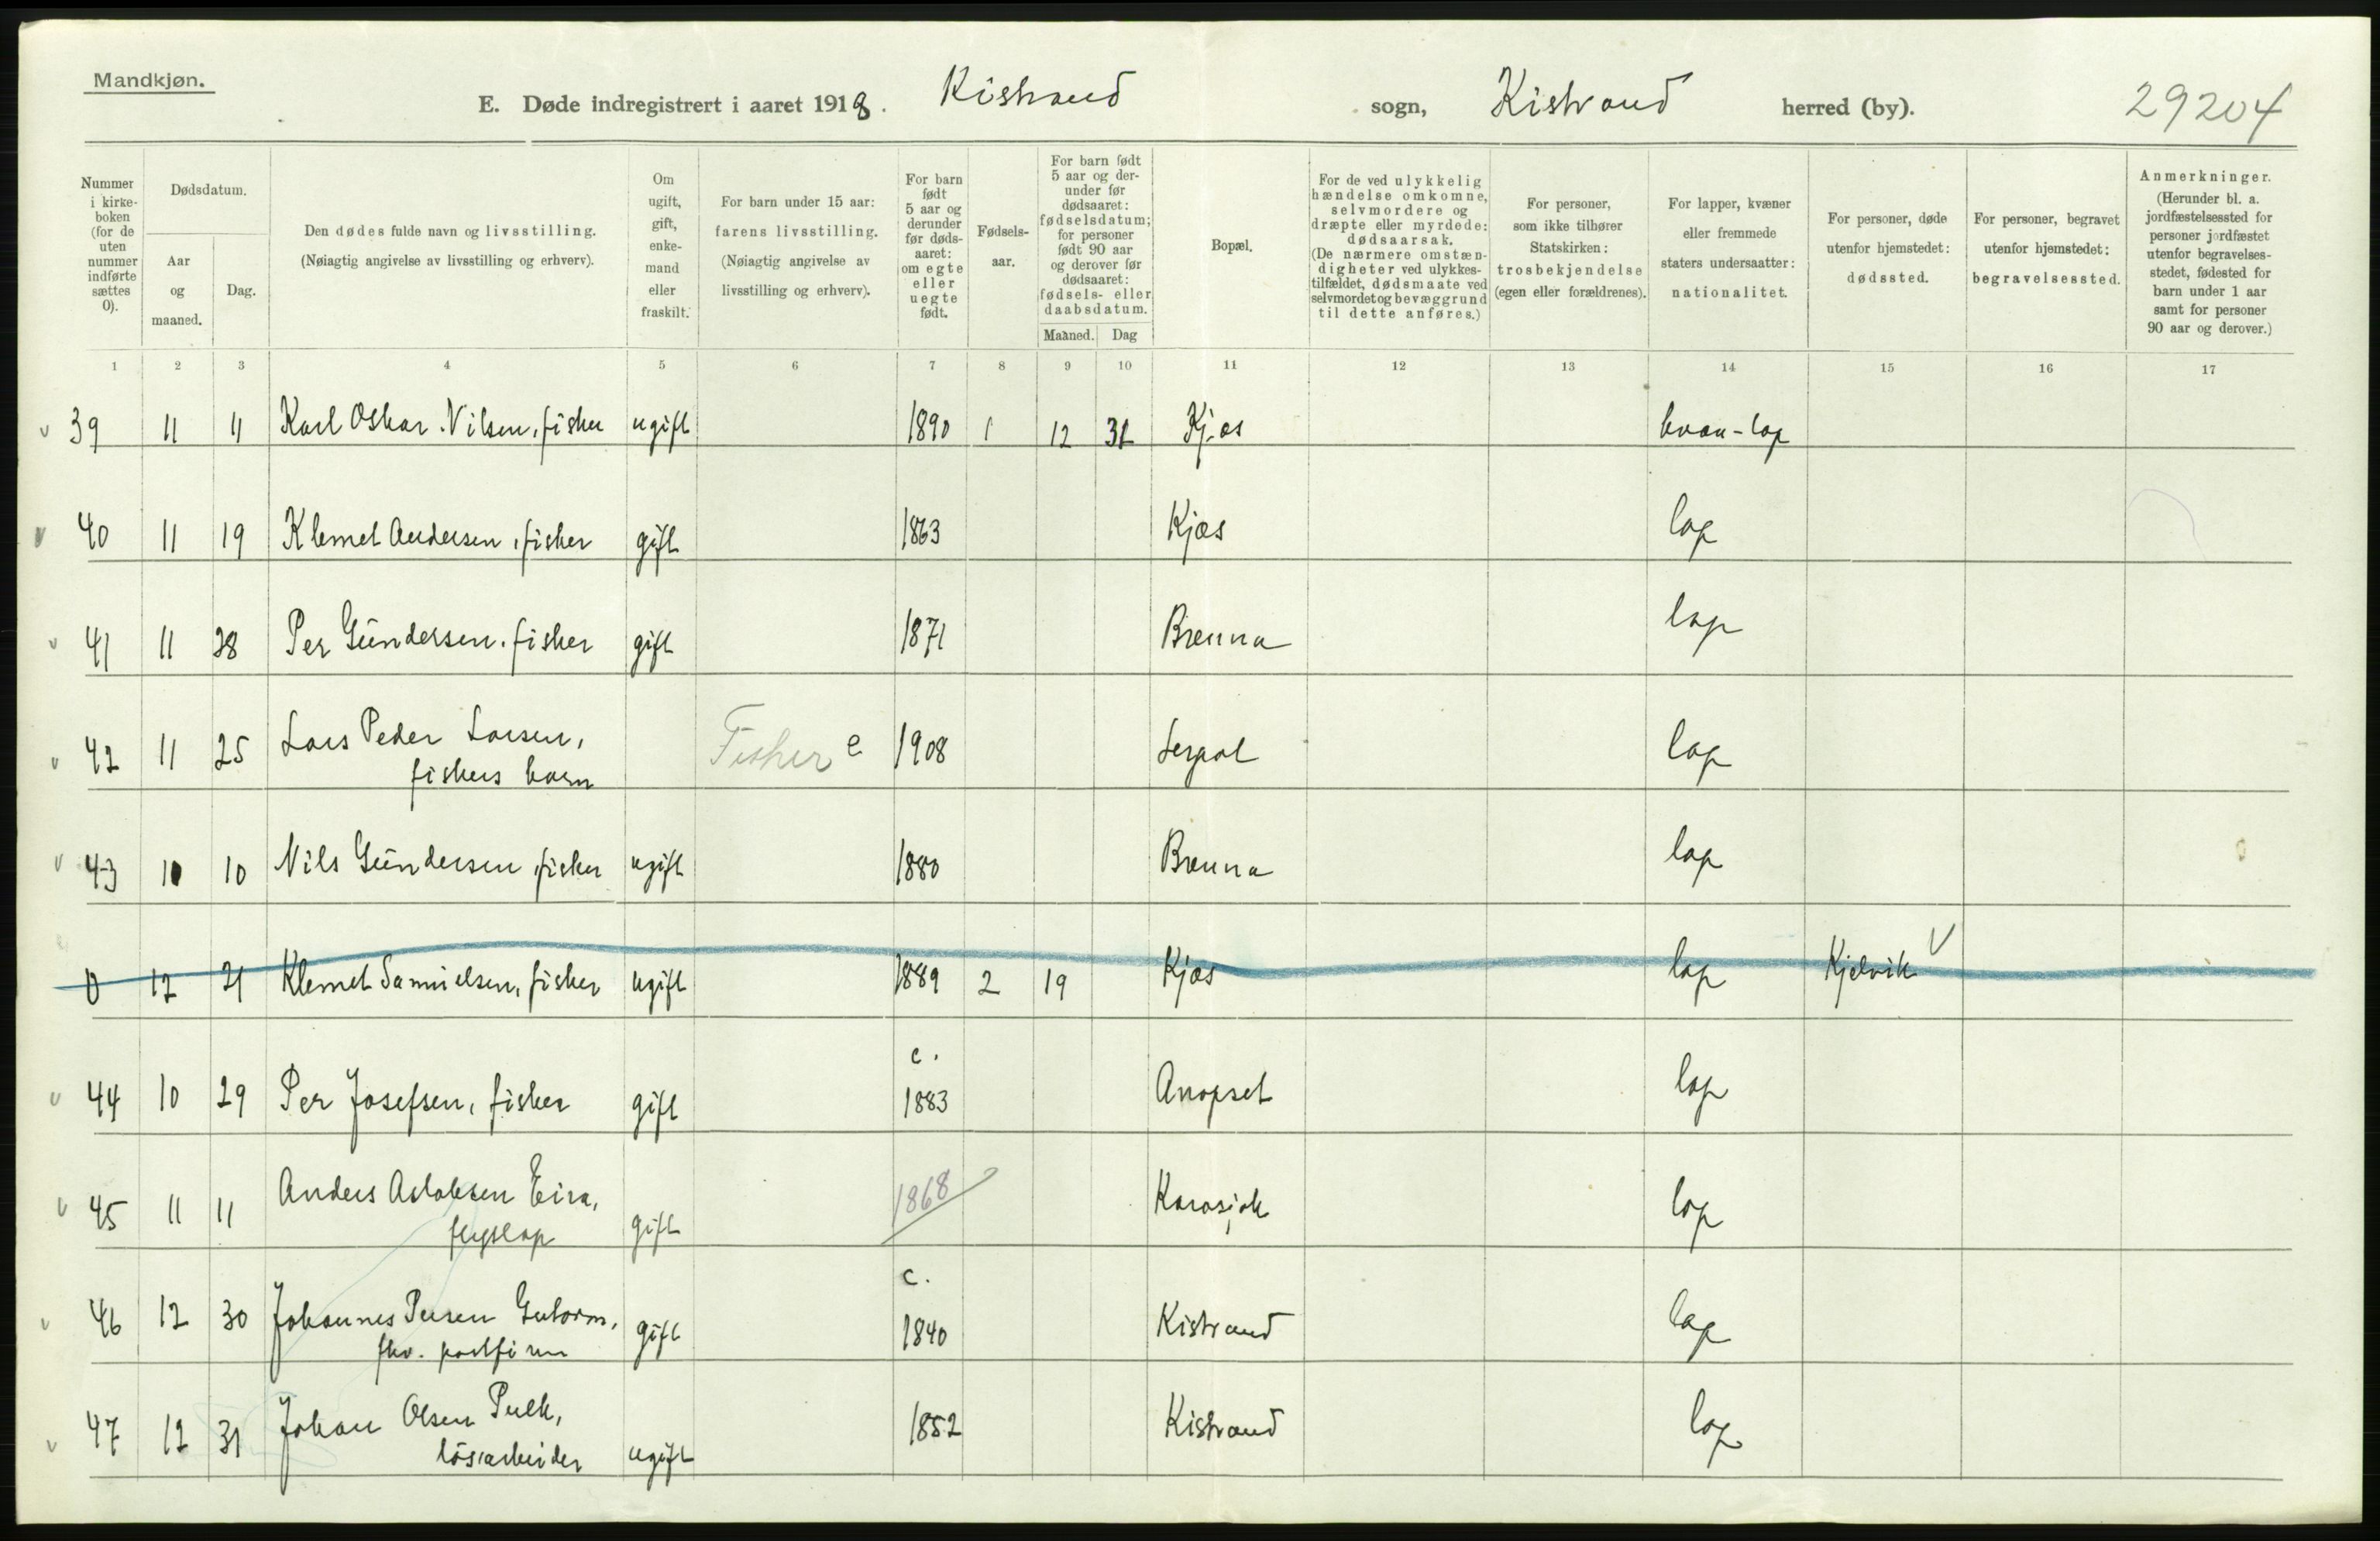 Mandkjøn.
E. Døde indregistrert i aaret 1918. Kistrand sogn, Kistrand herred (by). 29204
Nummer i kirke-boken (for de uten nummer indførte sættes 0).
Dødsdatum.
Aar og maaned.
Dag.
Den dødes fulde navn og livsstilling.
(Nøiagtig angivelse av livsstilling og erhverv).
Om ugift, gift, enke-mand eller fraskilt.
For barn under 15 aar: farens livsstilling.
(Nøiagtig angivelse av livsstilling og erhverv).
For barn født 5 aar og derunder før døds-aaret: om egte eller uegte født.
Fødsels-aar.
For barn født 5 aar og der-under før dødsaaret: fødselsdatum; for personer født 90 aar og derover før dødsaaret: fødsels- eller daabsdatum.
Maaned. Dag
Bopæl.
For de ved ulykkelig hændelse omkomne, selvmordere og dræpte eller myrdede: dødsaarsak.
(De nærmere omstæn-digheter ved ulykkes-tilfældet, dødsmaate ved selvmordet og bevæggrund til dette anføres.)
For personer, som ikke tilhører Statskirken: trosbekjendelse (egen eller forældrenes).
For lapper, kvæner eller fremmede staters undersaatter: nationalitet.
For personer, døde utenfor hjemstedet: dødssted.
For personer, begravet utenfor hjemstedet: begravelsessted.
Anmerkninger.
(Herunder bl. a. jordfæstelsessted for personer jordfæstet utenfor begravelses-stedet, fødested for barn under 1 aar samt for personer 90 aar og derover.)
1 2 3 4 5 6 7 8 9 10 11 12 13 14 15 16 17
39 11 11 Karl Oskar Nilsen, fisker ugift 1890 1 12 31 Kjæs kvæn-lap
40 11 19 Klemet Andersen, fisker gift 1863 Kjæs lap
41 11 28 Per Gundersen, fisker gift 1871 Brenna lap
42 11 25 Lars Peder Larsen, Fisker e 1908 lap
fiskers barn
43 10 10 Nils Gundersen, fisker ugift 1880 Brenna lap
0 12 21 Klemet Samuelsen, fisker ugift 1889 2 19 Kjæs lap Kjelvik V
c.
44 10 29 Per Josefsen, fisker gift 1883 Anopset lap
45 11 11 Anders Aslaksen Eira, gift 1868 Karasjok lap
flyslap
c.
46 12 30 Johannes Persen Guttorm, gift 1840 Kistrand lap
fhv. postfinn
47 12 31 Johan Olsen Pulk, ugift 1852 Kistrand lap
løsarbeider